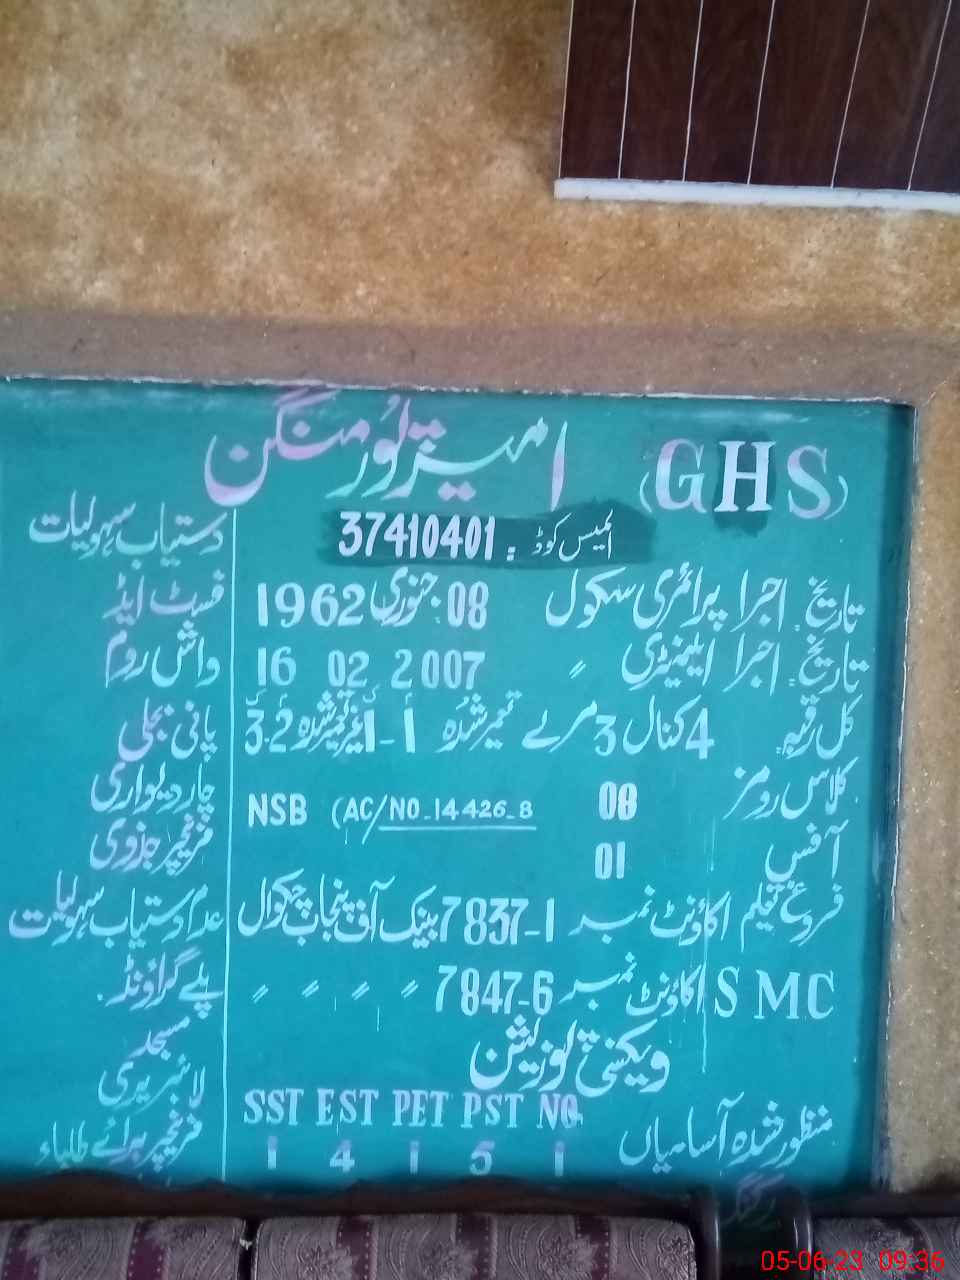 (GHS) امیرپور منگن
ایمیس کوڈ : 37410401
تاریخ اجرا پرائمری سکول 08 جنوری 1962
تاریخ اجرا ایلیمنٹری 〃 16 02 2007
کل رقبہ 4 کنال 3 مرلے تعمیر شدہ 1-1 غیر تعمیر شدہ 3.2
کلاس رومز 08
NSB (AC/NO-14426-8
آفس 01
فروغ تعلیم اکاؤنٹ نمبر 7837-1 بینک آف پنجاب چکوال
SMC اکاؤنٹ نمبر 7847-6 〃 〃 〃 〃
ویکنسی پوزیشن
SST EST PET PST NQ
منظور شدہ آسامیاں 1 4 1 5 1
ورکنگ
دستیاب سہولیات
فسٹ ایڈ
واش روم
پانی بجلی
چاردیواری
فرنیچر جزوی
عدم دستیاب سہولیات
پلے گراؤنڈ
مسجد
لائبریری
فرنیچر برائے طلباء
05-06-23 09:36